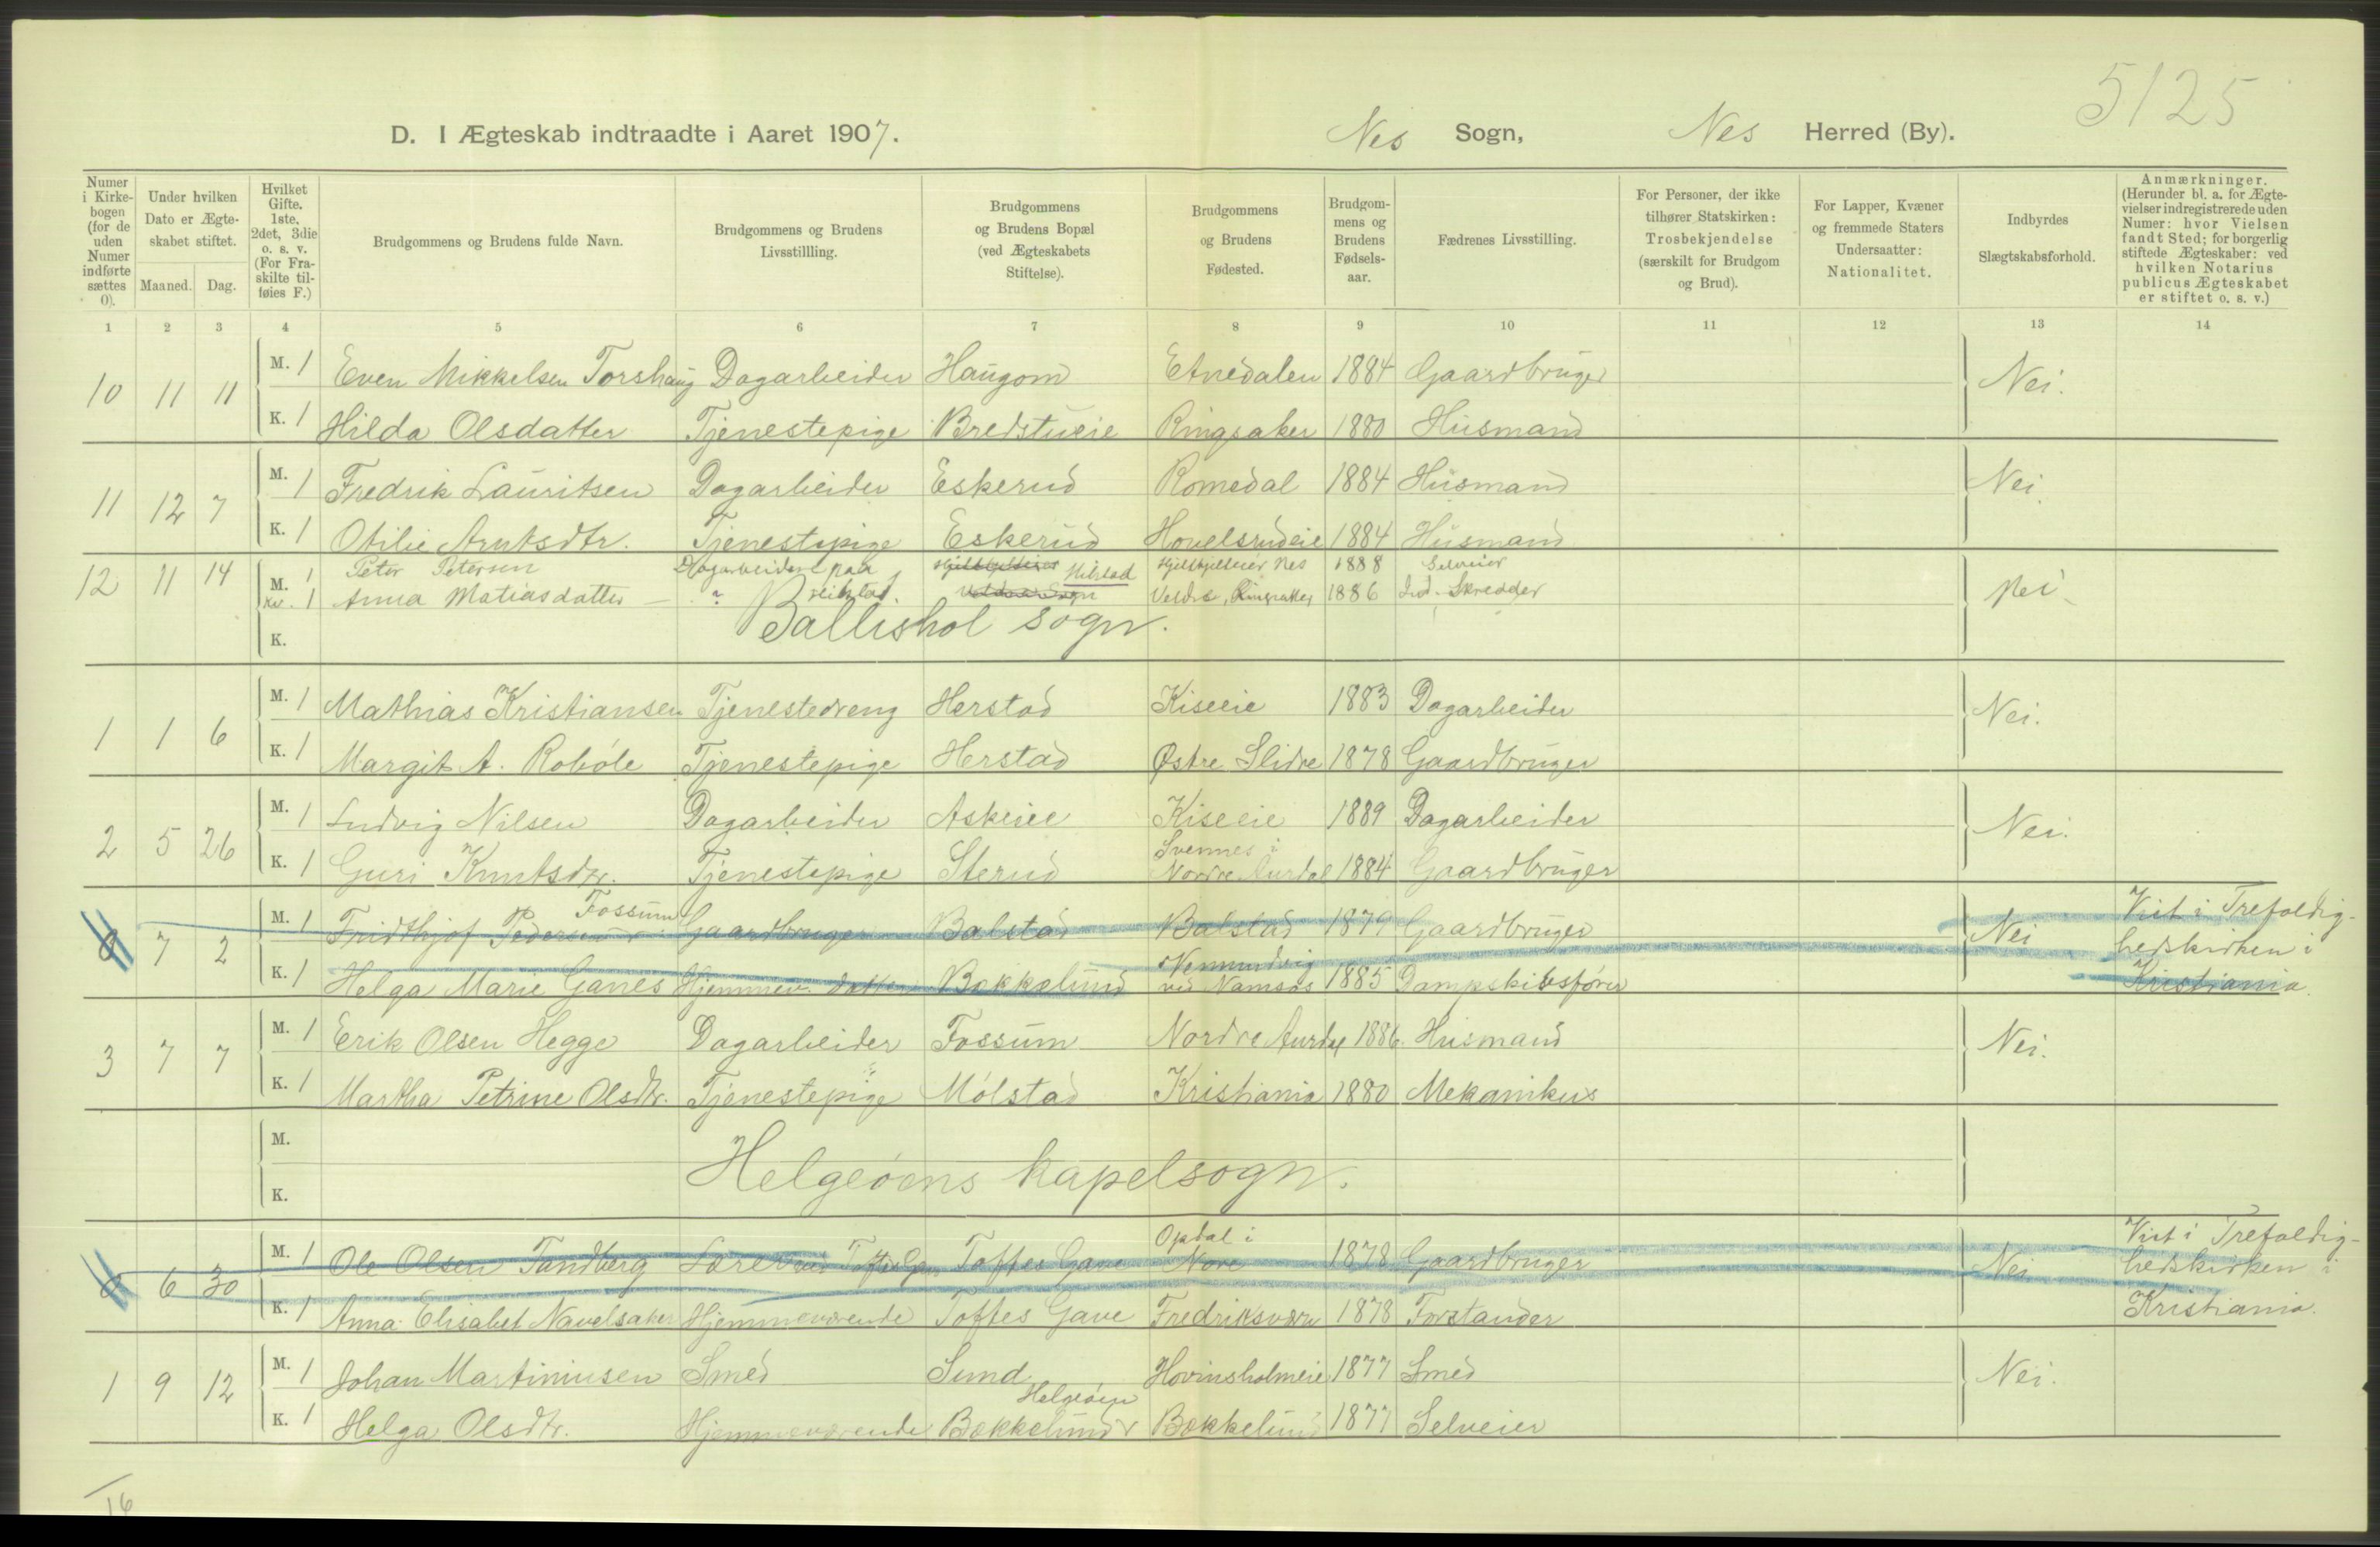 5125
D. I Ægteskab indtraadte i Aaret 1907. Nes Sogn, Nes Herred (By).
Numer i Kirkebogen (for de uden Numer indførte sættes 0).
Under hvilken Dato er Ægteskabet stiftet.
Maaned. Dag.
Hvilket Gifte, 1ste, 2det, 3die o. s. v. (For Fraskilte tilføies F.)
Brudgommens og Brudens fulde Navn.
Brudgommens og Brudens Livsstillling.
Brudgommens og Brudens Bopæl (ved Ægteskabets Stiftelse).
Brudgommens og Brudens Fødested.
Brudgommens og Brudens Fødselsaar.
Fædrenes Livsstilling.
For Personer, der ikke tilhører Statskirken: Trosbekjendelse (særskilt for Brudgom og Brud).
For Lapper, Kvæner og fremmede Staters Undersaatter: Nationalitet.
Indbyrdes Slægtskabsforhold.
Anmærkninger. (Herunder bl. a. for Ægtevielser indregistrerede uden Numer: hvor Vielsen fandt Sted; for borgerlig stiftede Ægteskaber: ved hvilken Notarius publicus Ægteskabet er stiftet o. s. v.)
1 2 3 4 5 6 7 8 9 10 11 12 13 14
10 11 11 M. 1 Even Mikkelsen Torshaug Dagarbeider Haugom Etnedalen 1884 Gaardbruger Nei.
K. 1 Hilda Olsdatter Tjenestepige Bredstueie Ringsaker 1880 Husmand
11 12 7 M. 1 Fredrik Lauritsen Dagarbeider Eskerud Romedal 1884 Husmand Nei.
K. 1 Otilie Arntsdtr. Tjenestepige Eskerud Hovelsrudeie 1884 Husmand
12 11 14 M. 1 Peter Petersen Dagarbeider paa Helstad Nes 1888 Selveier Nei
Kv. 1 Anna Matiasdatter Veldre, Ringsaker 1886 Ind. Skredder
K. Ballishol sogn.
1 1 6 M. 1 Mathias Kristiansen Tjenestedreng Herstad Kiseeie 1883 Dagarbeider Nei.
K. 1 Margit A. Robøle Tjenestepige Herstad Østre Slidre 1878 Gaardbruger
2 5 26 M. 1 Ludvig Nilsen Dagarbeider Askeiee Kiseeie 1889 Dagarbeider Nei.
K. 1 Guri Knutsdtr. Tjenestepige Sterud Svennes i Nordre Aurdal 1884 Gaardbruger
0 7 2 M. 1 Fridthjof Pedersen Fossum Gaardbruger Balstad Balstad 1879 Gaardbruger Nei Viet i Trefoldig-
hedskirken i
K. 1 Helga Marie Ganes Hjemmev. datter Bækkelund ved Namsos 1885 Dampskibsfører Kristiania.
3 7 7 M. 1 Erik Olsen Hegge Dagarbeider Fossum Nordre Aurdal 1886. Husmand Nei.
K. 1 Martha Petrine Olsdtr. Tjenestepige Mølstad Kristiania 1880 Mekanikus
M.
Helgeøens kapelsogn.
K.
0 6 30 M. 1 Ole Olsen Tandberg Lærer ved Toftes Gave Toftes Gave Opdal i Nore 1878 Gaardbruger Nei Viet i Trefoldig-
hedskirken i
K. 1 Anna Elisabet Navelsaker Hjemmeværende Toftes Gave Fredriksværn 1878 Forstander Kristiania.
1 9 12 M. 1 Johan Martiniusen Smed Sund Helgeøen Hovinsholmeie 1877 Smed Nei.
K. 1 Helga Olsdtr. Hjemmeværende Bækkelund Bækkelund 1877 Selveier
16